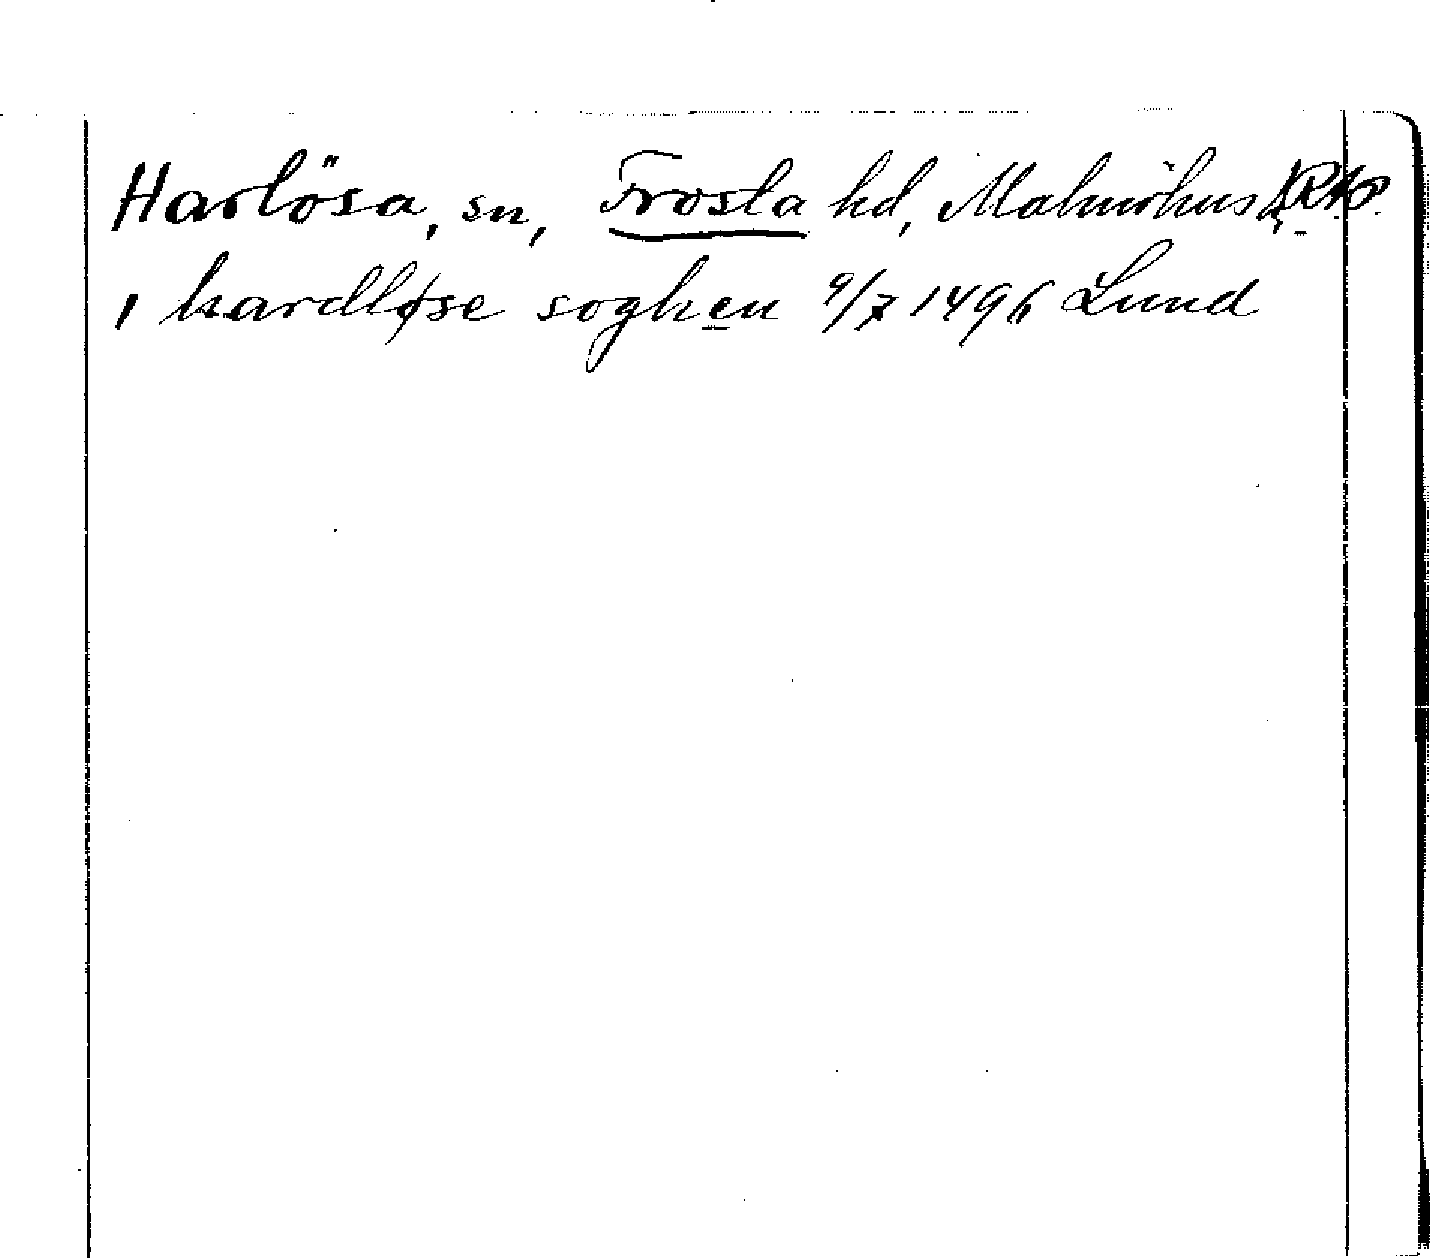 Harlösa, sn, Frosta hd, Malmöhus
i hardløse soghen 9/7 1496 Lund